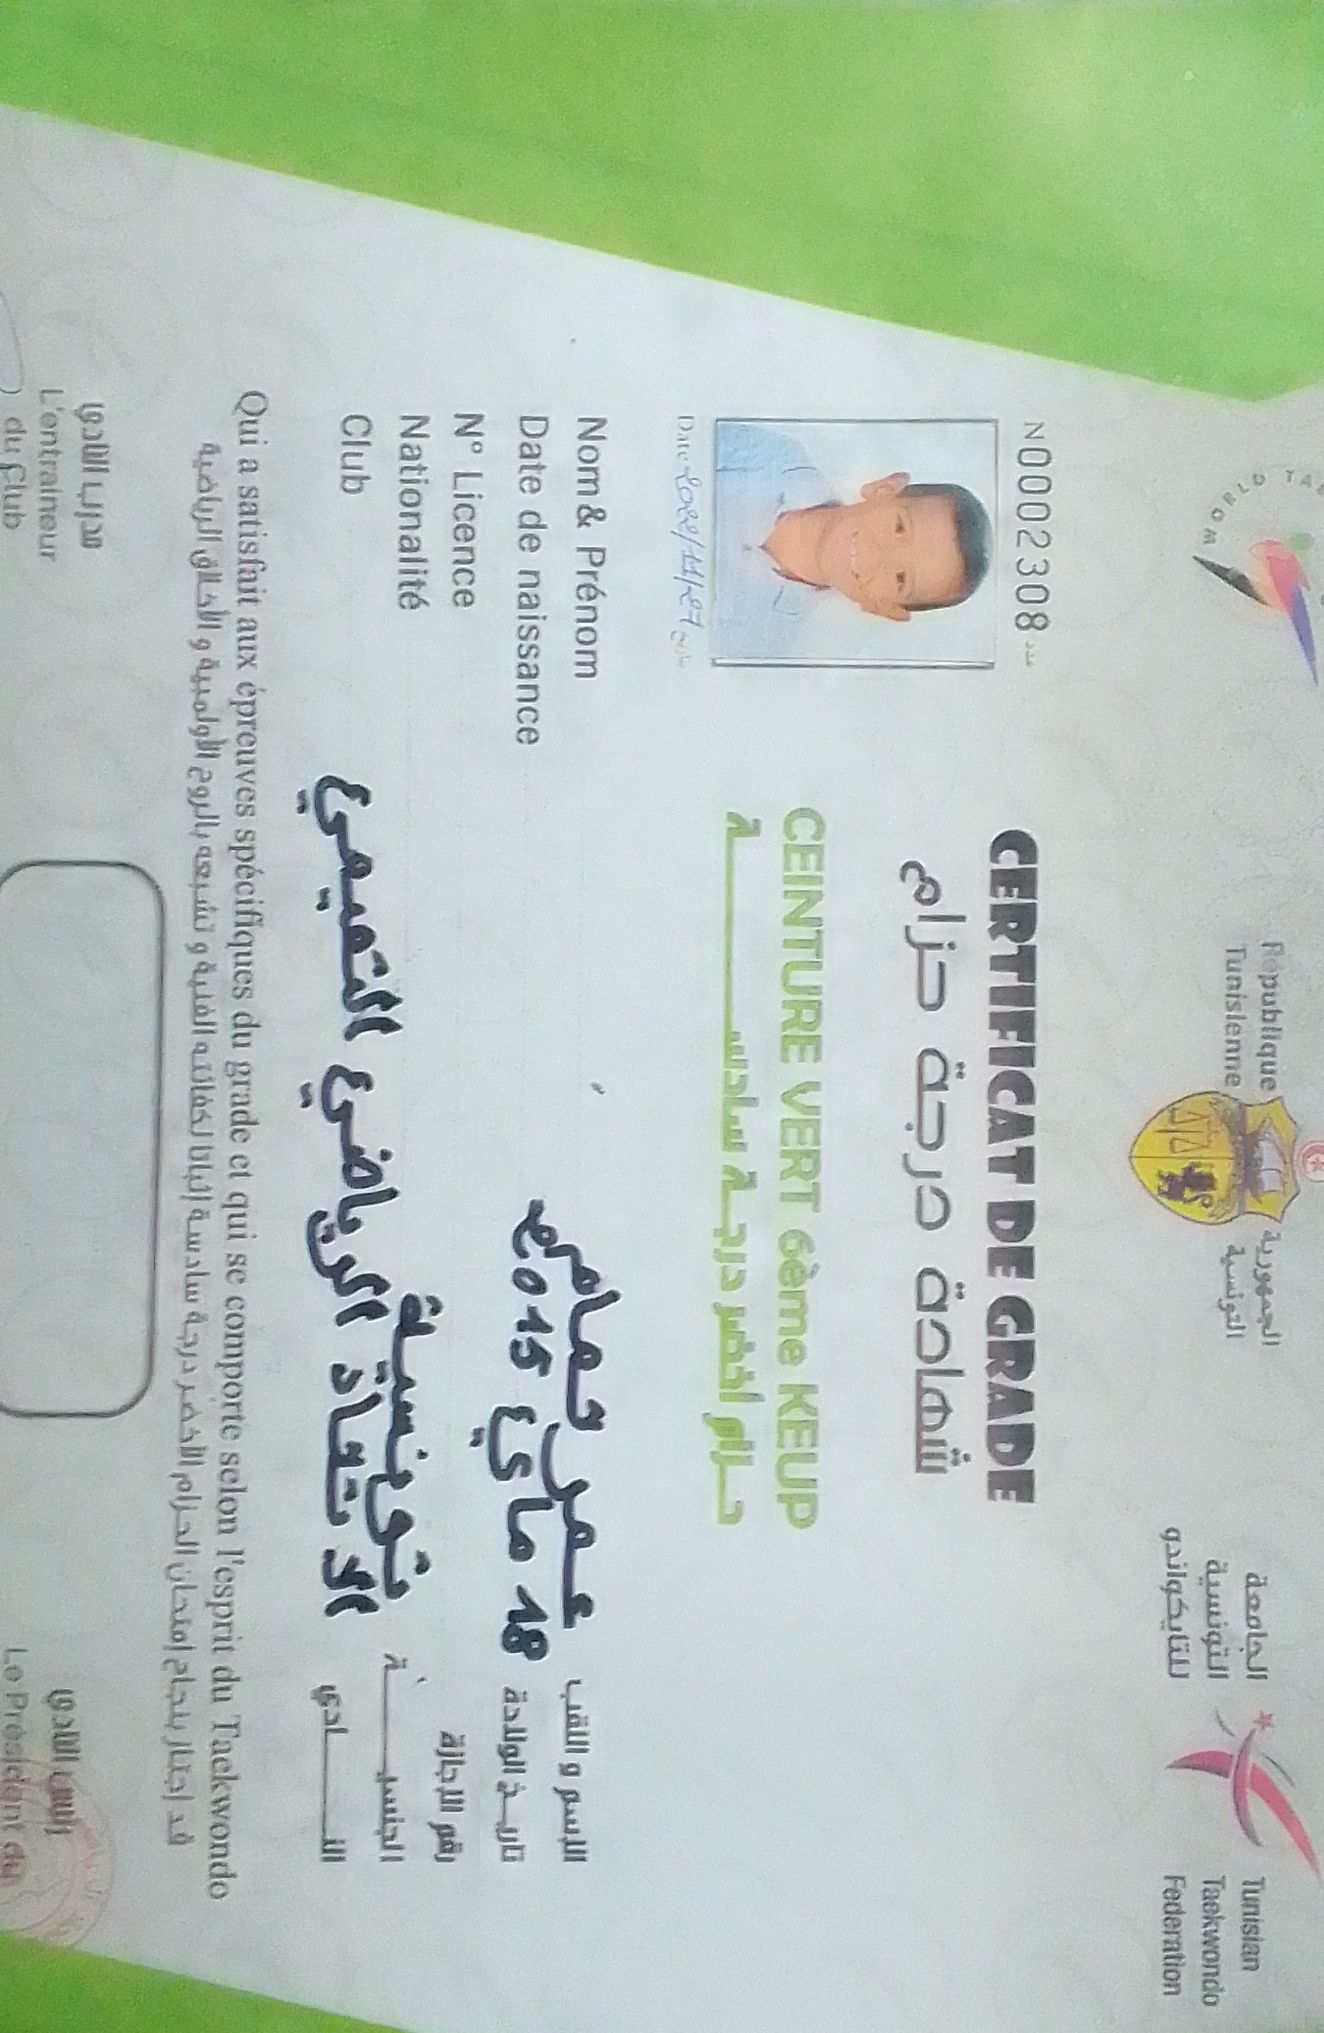 WORLD TAE
République
Tunisienne
الجمهورية
التونسية
الجامعة
التونسية
للتايكواندو
Tunisian
Taekwondo
Federation
N0002308 عدد
CERTIFICAT DE GRADE
شهادة درجة حزام
CEINTURE VERT 6ème KEUP
حزام أخضر درجة سادسة
Date 2022/11/27 تاريخ
Nom & Prénom عمر حمامي الإسم و اللقب
Date de naissance 18 ماي 2015 تاريخ الولادة
N° Licence رقم الإجازة
Nationalité تونسية الجنسية
Club الاتحاد الرياضي التميمي النادي
Qui a satisfait aux épreuves spécifiques du grade et qui se comporte selon l'esprit du Taekwondo
قد إجتاز بنجاح إمتحان الحزام الأخضر درجة سادسة إثباتا لكفائته الفنية و تشبعه بالروح الأولمبية و الأخلاق الرياضية
مدرب النادي
L'entraineur
du Club
رئيس النادي
Le Président du